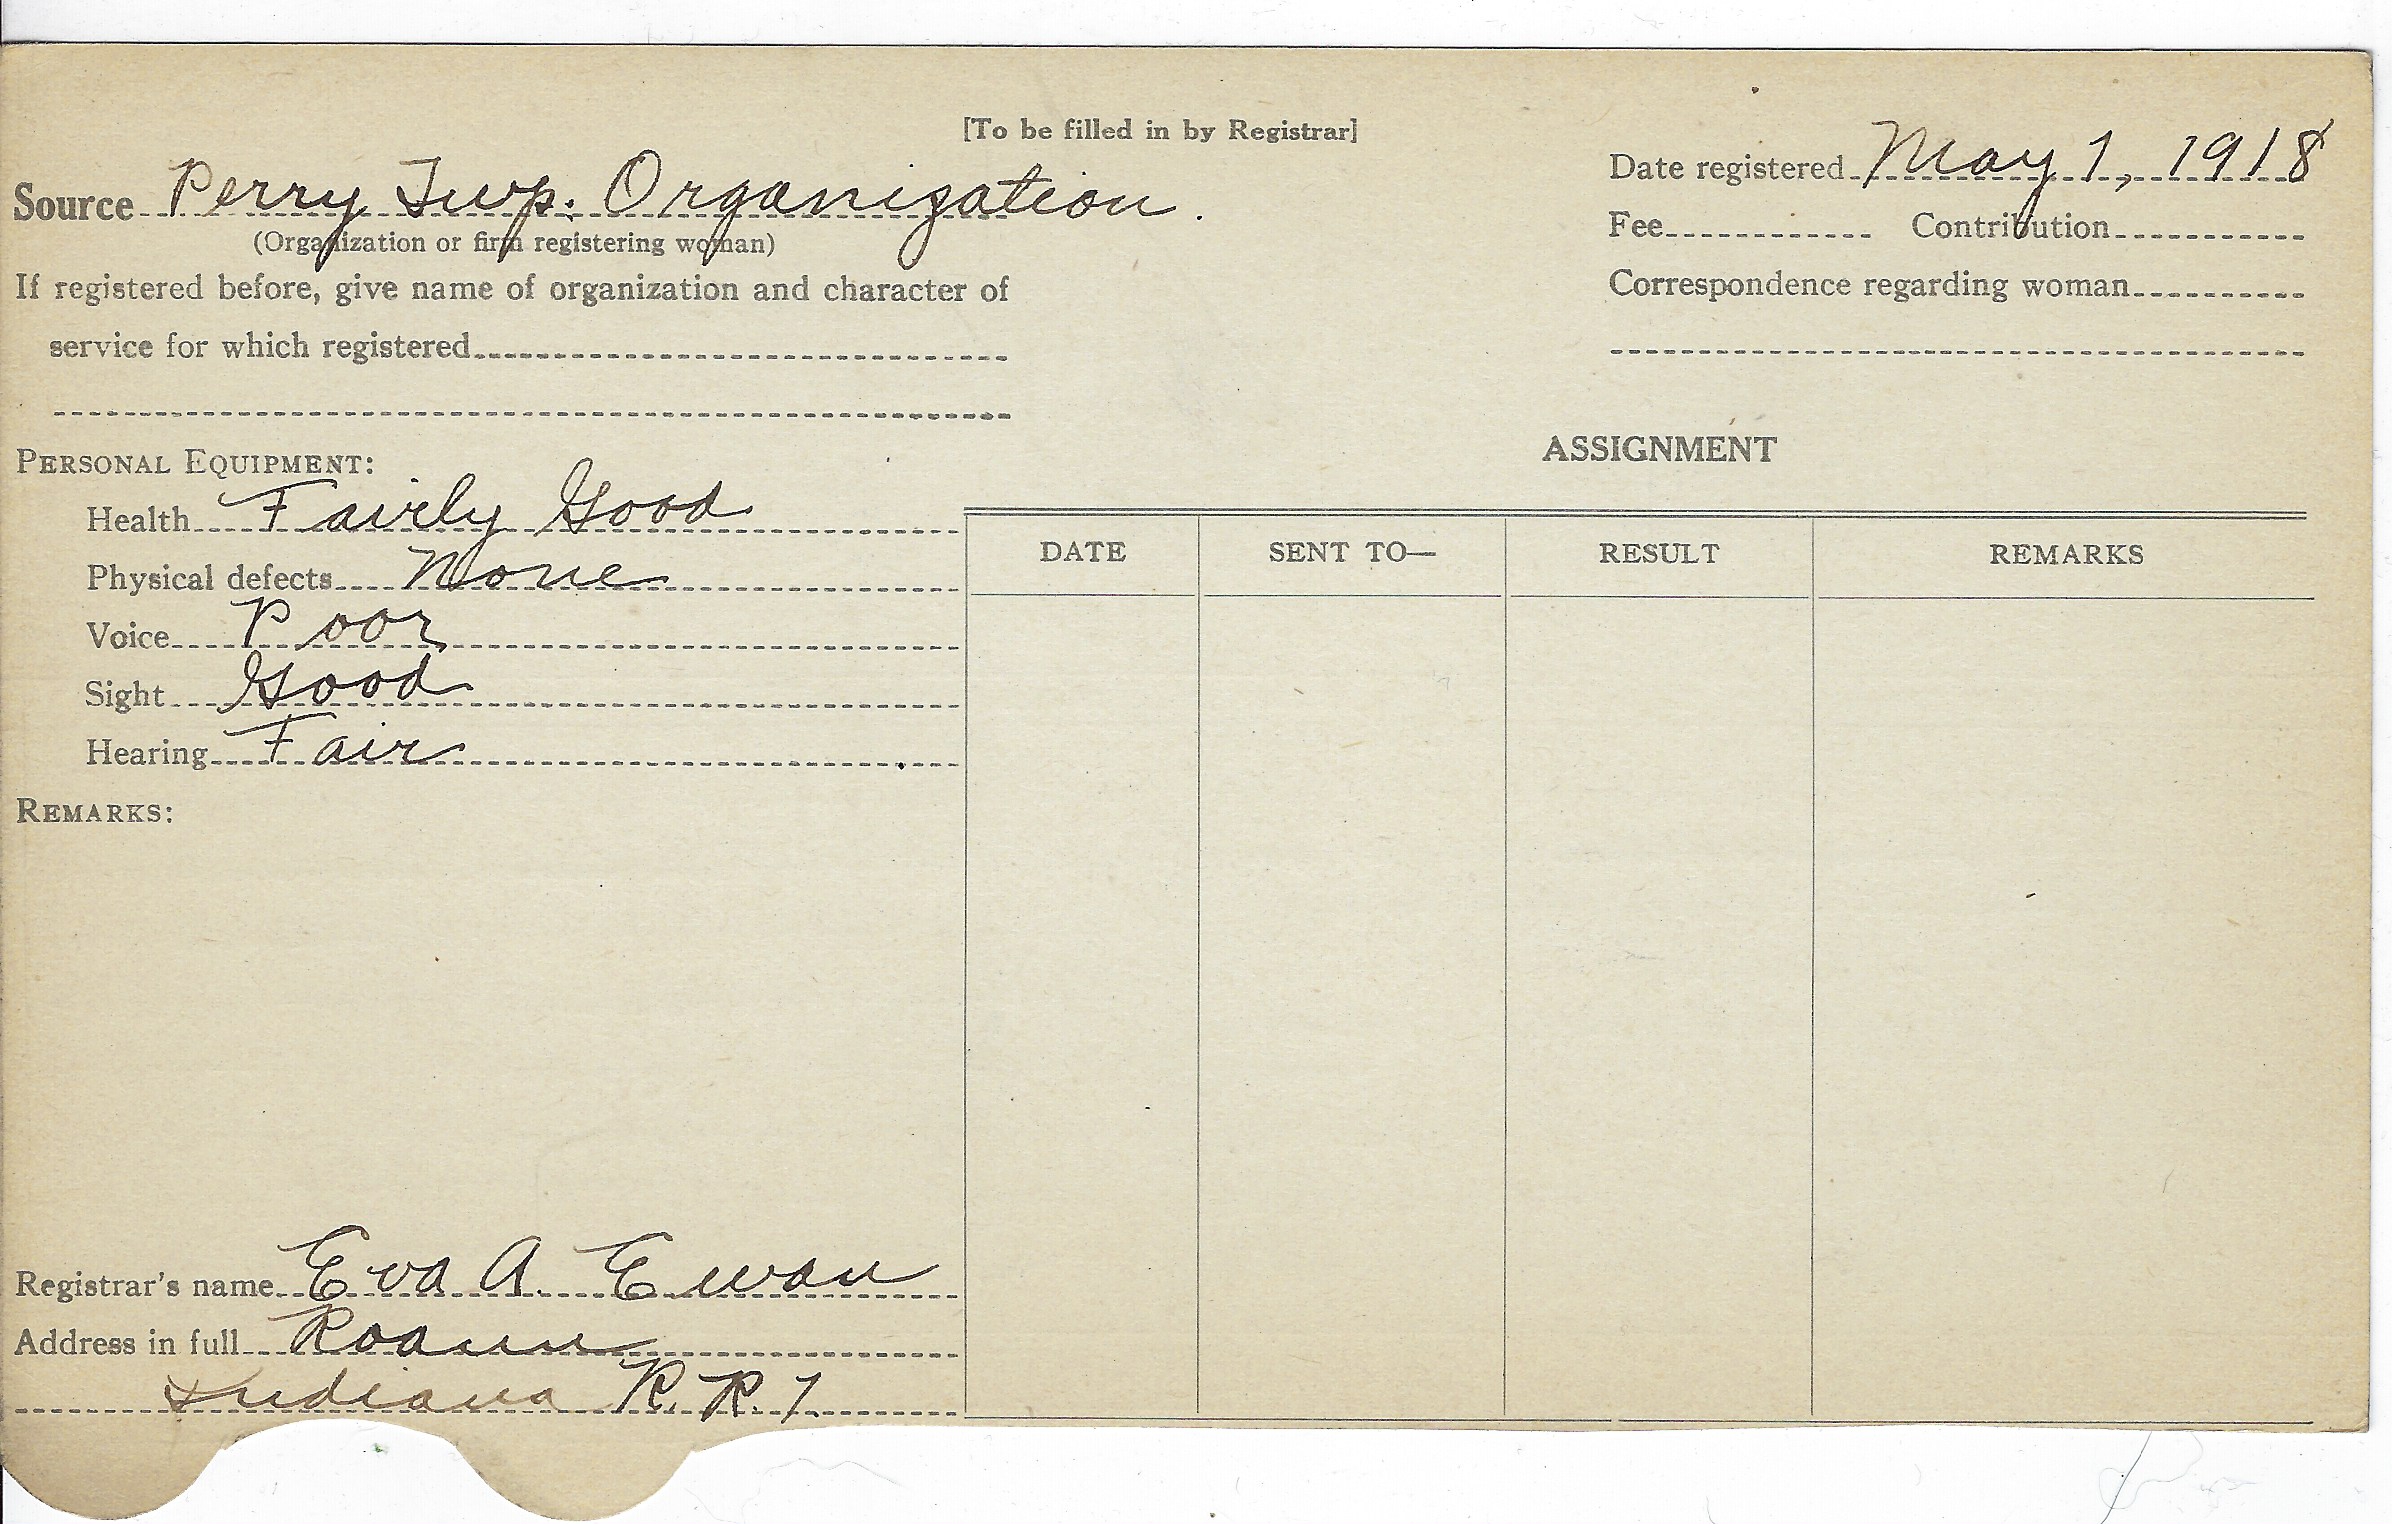 [To be filled in by Registrar]
Source Perry Twp. Organization.
(Organization or firm registering woman)
If registered before, give name of organization and character of
service for which registered
Date registered May 1, 1918
Fee Contribution
Correspondence regarding woman
PERSONAL EQUIPMENT:
Health Fairly Good
Physical defects None
Voice Poor
Sight Good
Hearing Fair
REMARKS:
Registrar's name Eva A. Ewan
Address in full Roann
Indiana R. R. 1.
ASSIGNMENT
DATE SENT TO— RESULT REMARKS